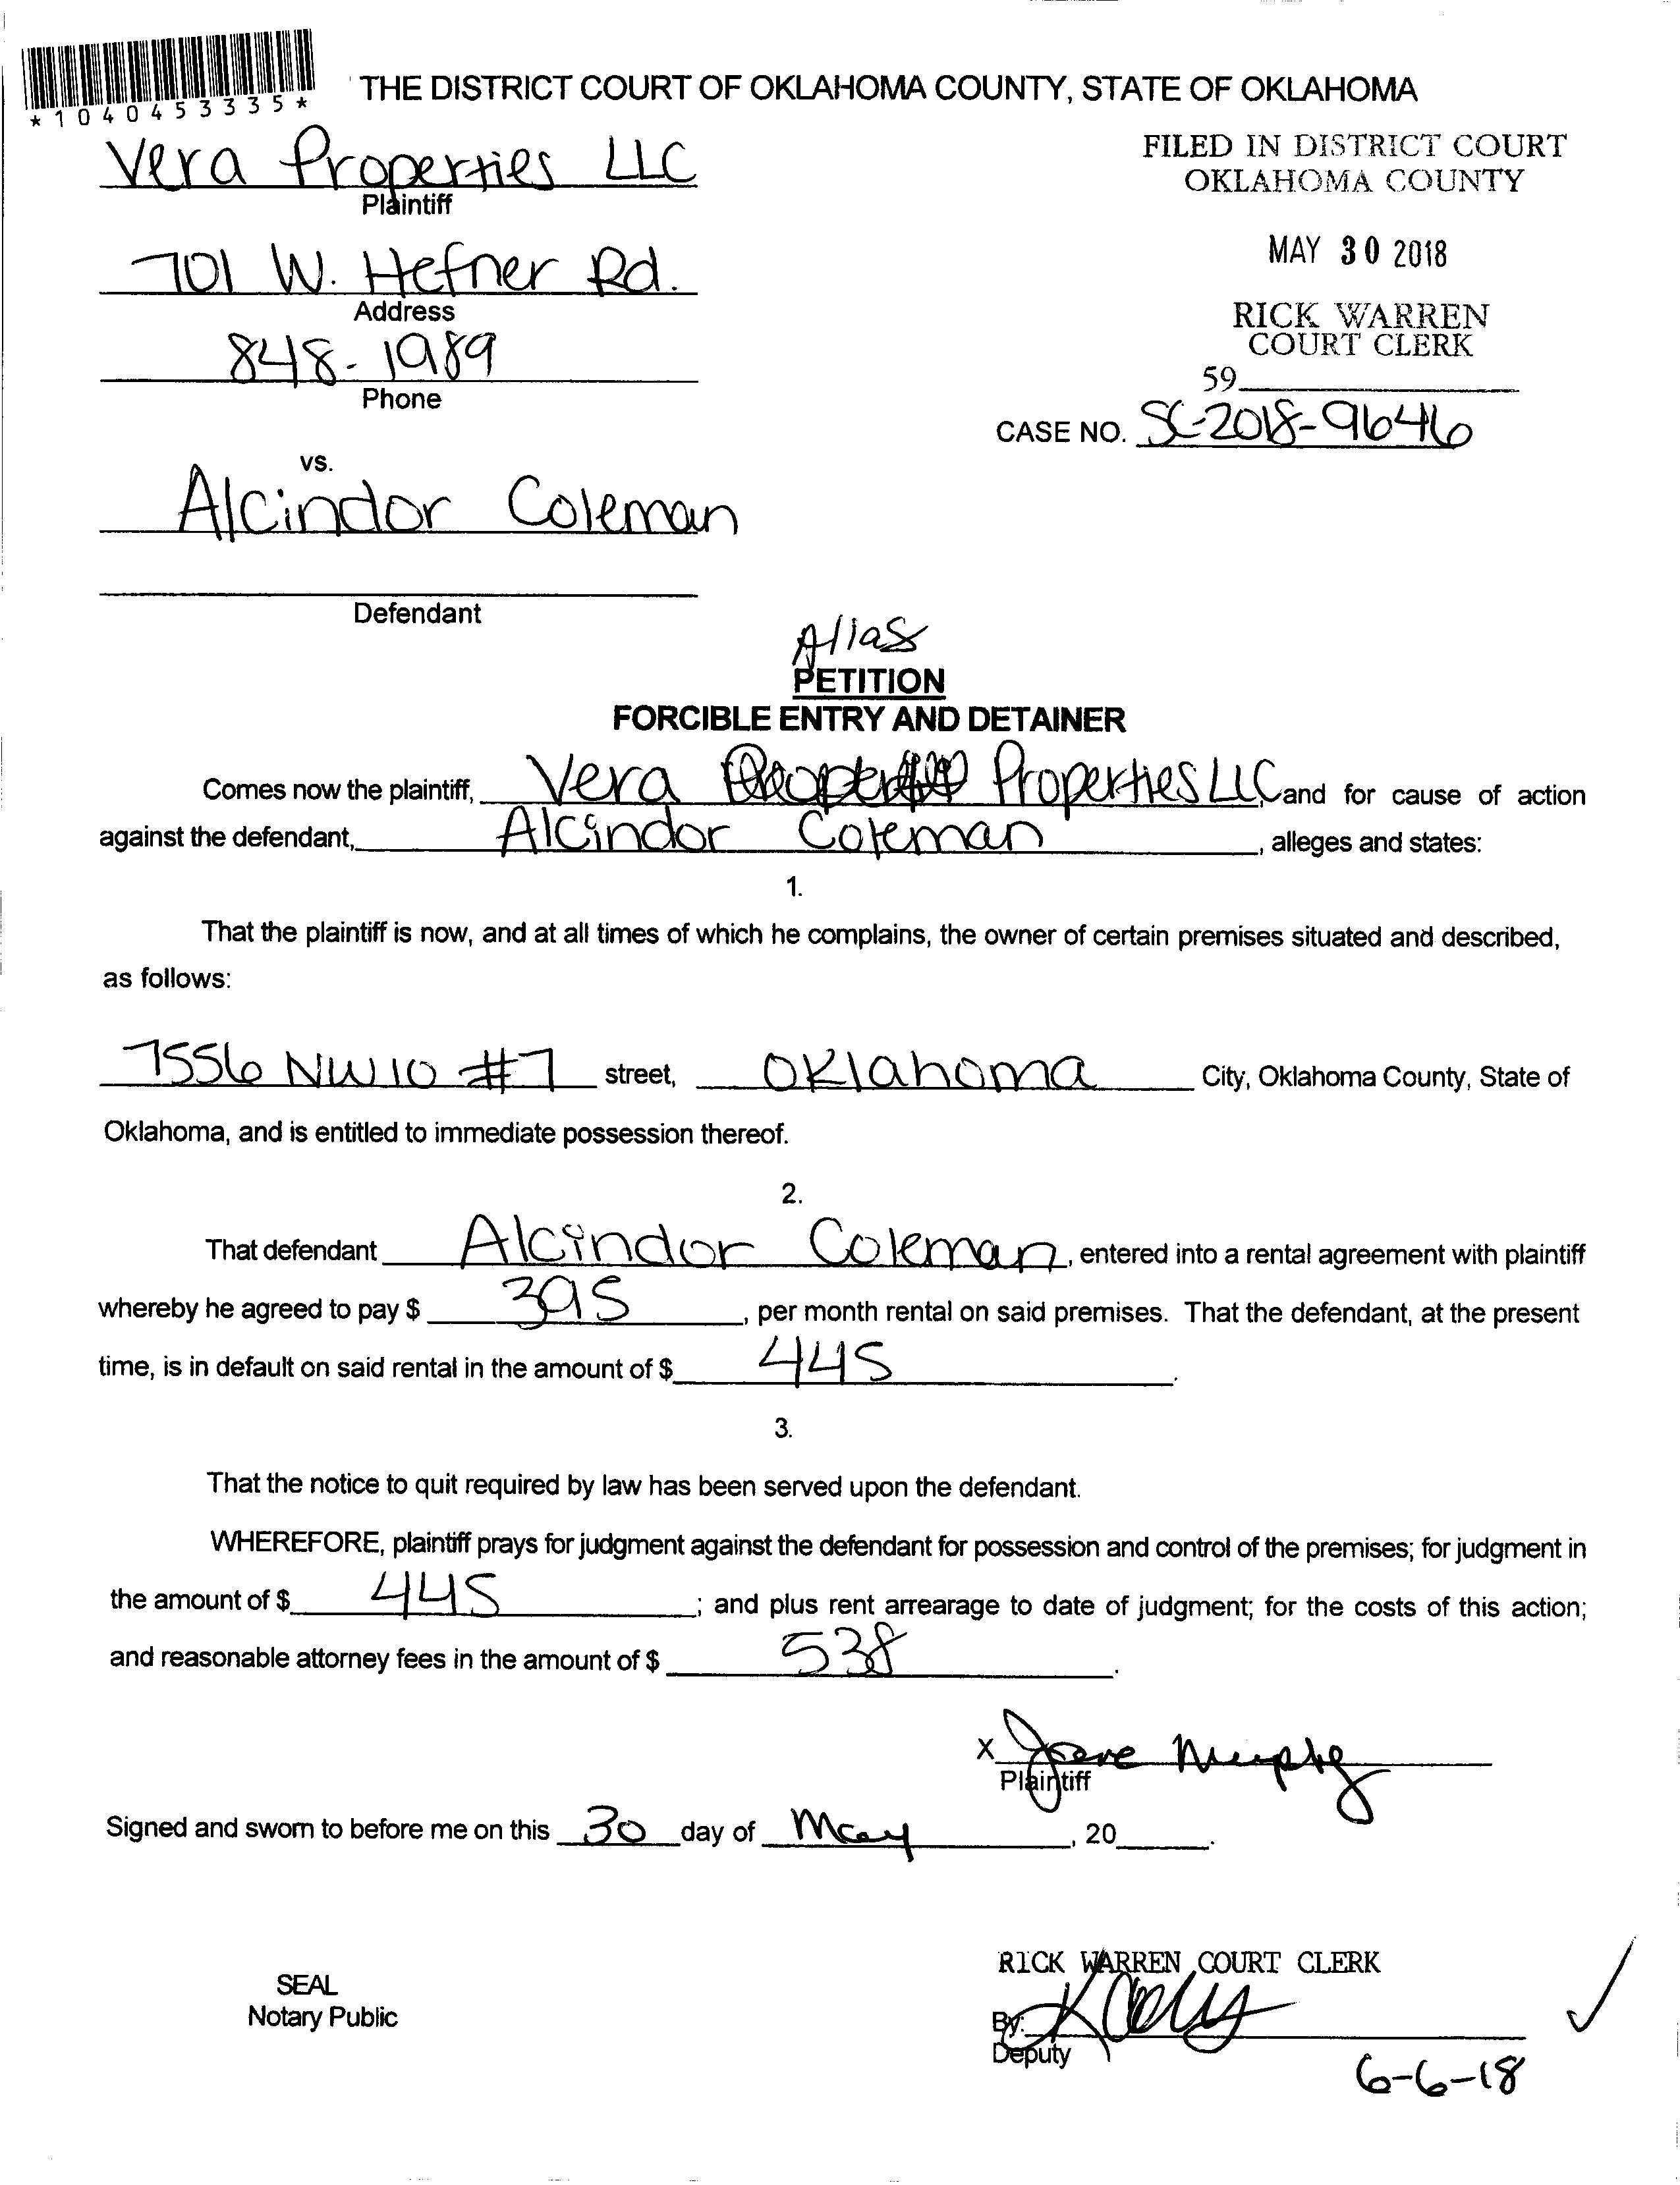 *1040453335*
THE DISTRICT COURT OF OKLAHOMA COUNTY, STATE OF OKLAHOMA
Vera Properties LLC
Plaintiff
FILED IN DISTRICT COURT
OKLAHOMA COUNTY
701 W. Hefner Rd.
Address
MAY 30 2018
848-1989
Phone
RICK WARREN
COURT CLERK
59
CASE NO. SC-2018-9646
vs.
Alcindor Coleman
Defendant
Alias
PETITION
FORCIBLE ENTRY AND DETAINER
Comes now the plaintiff, Vera Properties LLC and for cause of action
against the defendant, Alcindor Coleman, alleges and states:
1.
That the plaintiff is now, and at all times of which he complains, the owner of certain premises situated and described,
as follows:
7556 NW 10 #7 street, Oklahoma City, Oklahoma County, State of
Oklahoma, and is entitled to immediate possession thereof.
2.
That defendant Alcindor Coleman, entered into a rental agreement with plaintiff
whereby he agreed to pay $ 395, per month rental on said premises. That the defendant, at the present
time, is in default on said rental in the amount of $ 445.
3.
That the notice to quit required by law has been served upon the defendant.
WHEREFORE, plaintiff prays for judgment against the defendant for possession and control of the premises; for judgment in
the amount of $ 445; and plus rent arrearage to date of judgment; for the costs of this action;
and reasonable attorney fees in the amount of $ 538.
X
Plaintiff
Signed and sworn to before me on this 30 day of May, 20.
SEAL
Notary Public
RICK WARREN COURT CLERK
By:
Deputy
6-6-18